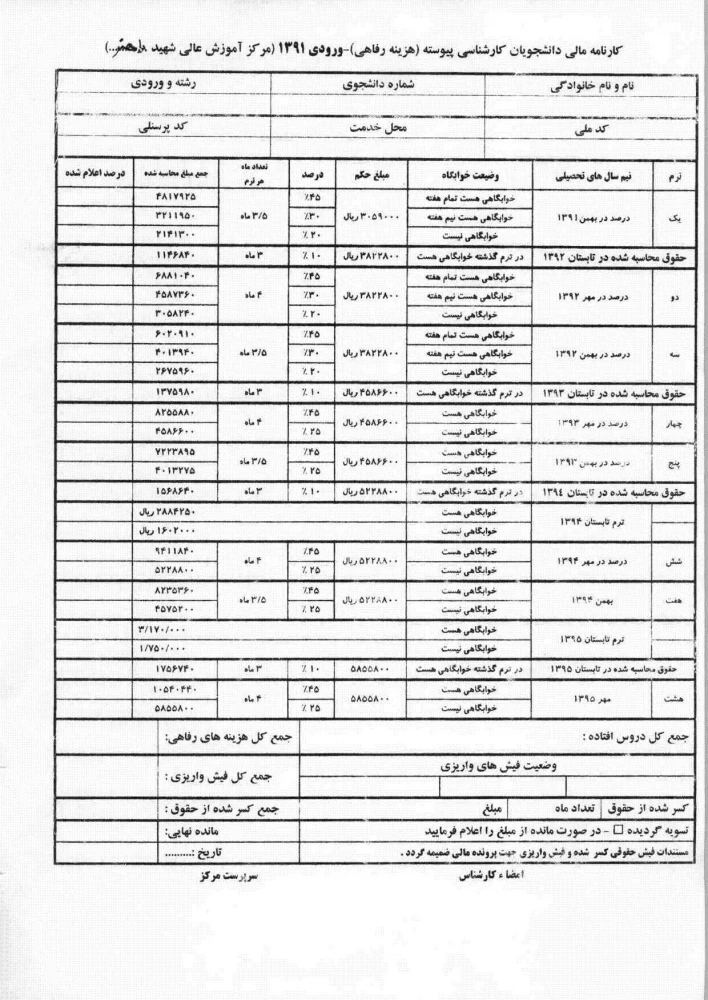 کارنامه مالی دانشجویان کارشناسی پیوسته (هزینه رفاهی)-ورودی ۱۳۹۱ (مرکز آموزش عالی شهید ...)
نام و نام خانوادگی شماره دانشجوی رشته و ورودی
کد ملی محل خدمت کد پرسنلی
ترم نیم سال های تحصیلی وضعیت خوابگاه مبلغ حکم درصد تعداد ماه هر ترم جمع مبلغ محاسبه شده درصد اعلام شده
یک درصد در بهمن ۱۳۹۱ خوابگاهی هست تمام هفته ۳۰۵۹۰۰۰ ریال ٪۴۵ ۳/۵ ماه ۴۸۱۷۹۲۵
خوابگاهی هست نیم هفته ٪۳۰ ۳۲۱۱۹۵۰
خوابگاهی نیست ٪۲۰ ۲۱۴۱۳۰۰
حقوق محاسبه شده در تابستان ۱۳۹۲ در ترم گذشته خوابگاهی هست ۳۸۲۲۸۰۰ ریال ٪۱۰ ۳ ماه ۱۱۴۶۸۴۰
دو درصد در مهر ۱۳۹۲ خوابگاهی هست تمام هفته ۳۸۲۲۸۰۰ ریال ٪۴۵ ۴ ماه ۶۸۸۱۰۴۰
خوابگاهی هست نیم هفته ٪۳۰ ۴۵۸۷۳۶۰
خوابگاهی نیست ٪۲۰ ۳۰۵۸۲۴۰
سه درصد در بهمن ۱۳۹۲ خوابگاهی هست تمام هفته ۳۸۲۲۸۰۰ ریال ٪۴۵ ۳/۵ ماه ۶۰۲۰۹۱۰
خوابگاهی هست نیم هفته ٪۳۰ ۴۰۱۳۹۴۰
خوابگاهی نیست ٪۲۰ ۲۶۷۵۹۶۰
حقوق محاسبه شده در تابستان ۱۳۹۳ در ترم گذشته خوابگاهی هست ۴۵۸۶۶۰۰ ریال ٪۱۰ ۳ ماه ۱۳۷۵۹۸۰
چهار درصد در مهر ۱۳۹۳ خوابگاهی هست ۴۵۸۶۶۰۰ ریال ٪۴۵ ۴ ماه ۸۲۵۵۸۸۰
خوابگاهی نیست ٪۲۵ ۴۵۸۶۶۰۰
پنج درصد در بهمن ۱۳۹۳ خوابگاهی هست ۴۵۸۶۶۰۰ ریال ٪۴۵ ۳/۵ ماه ۷۲۲۳۸۹۵
خوابگاهی نیست ٪۲۵ ۴۰۱۳۲۷۵
حقوق محاسبه شده در تابستان ۱۳۹٤ در ترم گذشته خوابگاهی هست ۵۲۲۸۸۰۰ ریال ٪۱۰ ۳ ماه ۱۵۶۸۶۴۰
ترم تابستان ۱۳۹۴ خوابگاهی هست ۲۸۸۴۲۵۰ ریال
خوابگاهی نیست ۱۶۰۲۰۰۰ ریال
شش درصد در مهر ۱۳۹۴ خوابگاهی هست ۵۲۲۸۸۰۰ ریال ٪۴۵ ۴ ماه ۹۴۱۱۸۴۰
خوابگاهی نیست ٪۲۵ ۵۲۲۸۸۰۰
هفت بهمن ۱۳۹۴ خوابگاهی هست ۵۲۲۸۸۰۰ ریال ٪۴۵ ۳/۵ ماه ۸۲۳۵۳۶۰
خوابگاهی نیست ٪۲۵ ۴۵۷۵۲۰۰
ترم تابستان ۱۳۹۵ خوابگاهی هست ۳/۱۷۰/۰۰۰
خوابگاهی نیست ۱/۷۵۰/۰۰۰
حقوق محاسبه شده در تابستان ۱۳۹۵ در ترم گذشته خوابگاهی هست ۵۸۵۵۸۰۰ ٪۱۰ ۳ ماه ۱۷۵۶۷۴۰
هشت مهر ۱۳۹۵ خوابگاهی هست ۵۸۵۵۸۰۰ ٪۴۵ ۴ ماه ۱۰۵۴۰۴۴۰
خوابگاهی نیست ٪۲۵ ۵۸۵۵۸۰۰
جمع کل دروس افتاده : جمع کل هزینه های رفاهی:
وضعیت فیش های واریزی جمع کل فیش واریزی :
کسر شده از حقوق تعداد ماه مبلغ جمع کسر شده از حقوق :
تسویه گردیده □ - در صورت مانده از مبلغ را اعلام فرمایید مانده نهایی:
مستندات فیش حقوقی کسر شده و فیش واریزی جهت پرونده مالی ضمیمه گردد . تاریخ :.........
امضاء کارشناس سرپرست مرکز